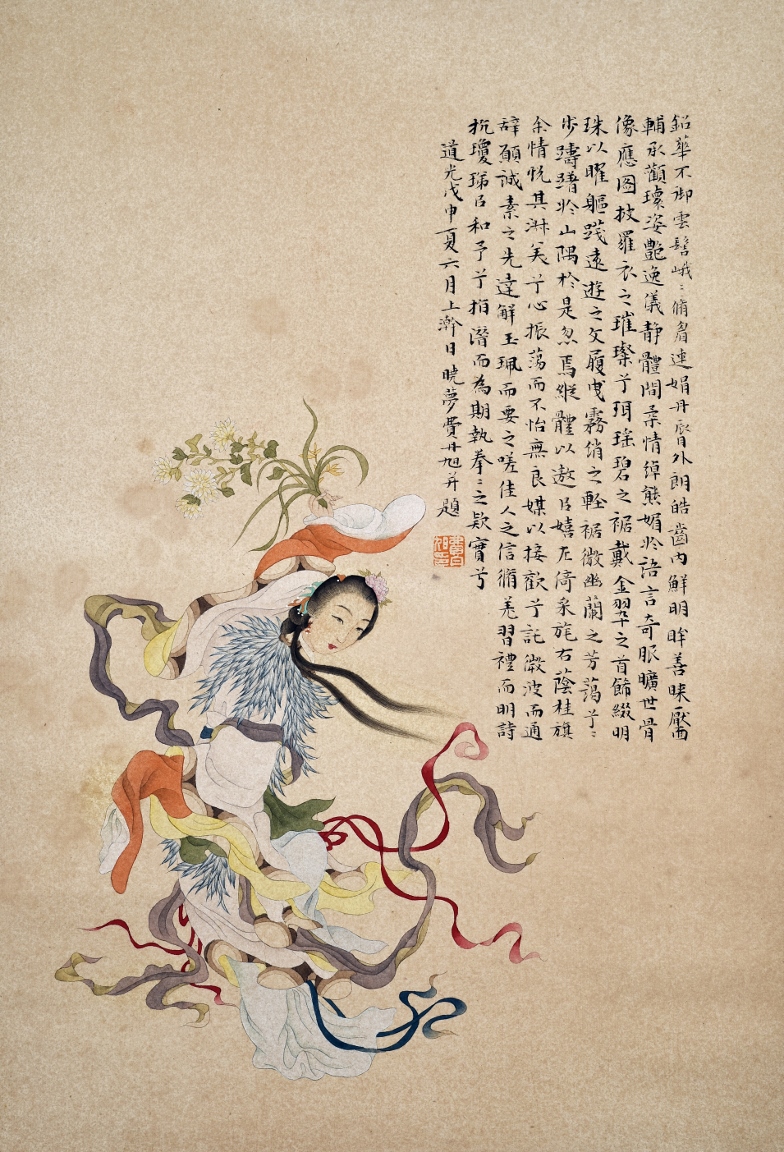 鉛華不御雲髻峨〻脩眉連娟丹脣外朗皓齒內鮮明眸善睞靨
輔承顴瓌姿艷逸儀靜體閒柔情綽態媚於語言奇服曠世骨
像應圖披羅衣之璀璨兮珥瑤碧之裾戴金翠之首飾綴明
珠以曜軀踐遠遊之文履曳霧綃之輕裾微幽蘭之芳藹兮〻
步躊躇於山隅於是忽焉縱體以遨以嬉左倚采旄右蔭桂旗
余情悅其淑美兮心振蕩而不怡無良媒以接歡兮託微波而通
辭願誠素之先達解玉珮而要之嗟佳人之信脩羌習禮而明詩
抗瓊珶以和予兮指潛而為期執拳〻之款實兮
道光戊申夏六月上澣日曉夢費丹旭并題